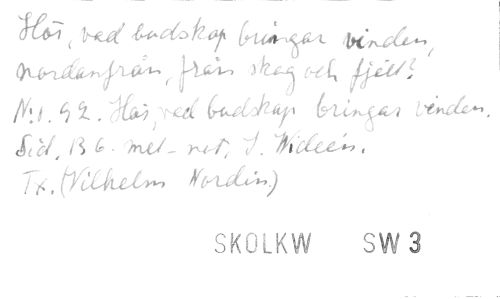 Hör, vad budskap bringar vinden,
nordanfrån, från skog och fjäll?
N:o 1. 92. Hör, vad budskap bringar vinden.
Sid. 136. mel-not. I. Widéen.
Tx. (Vilhelm Nordin.)
SKOLKW SW 3